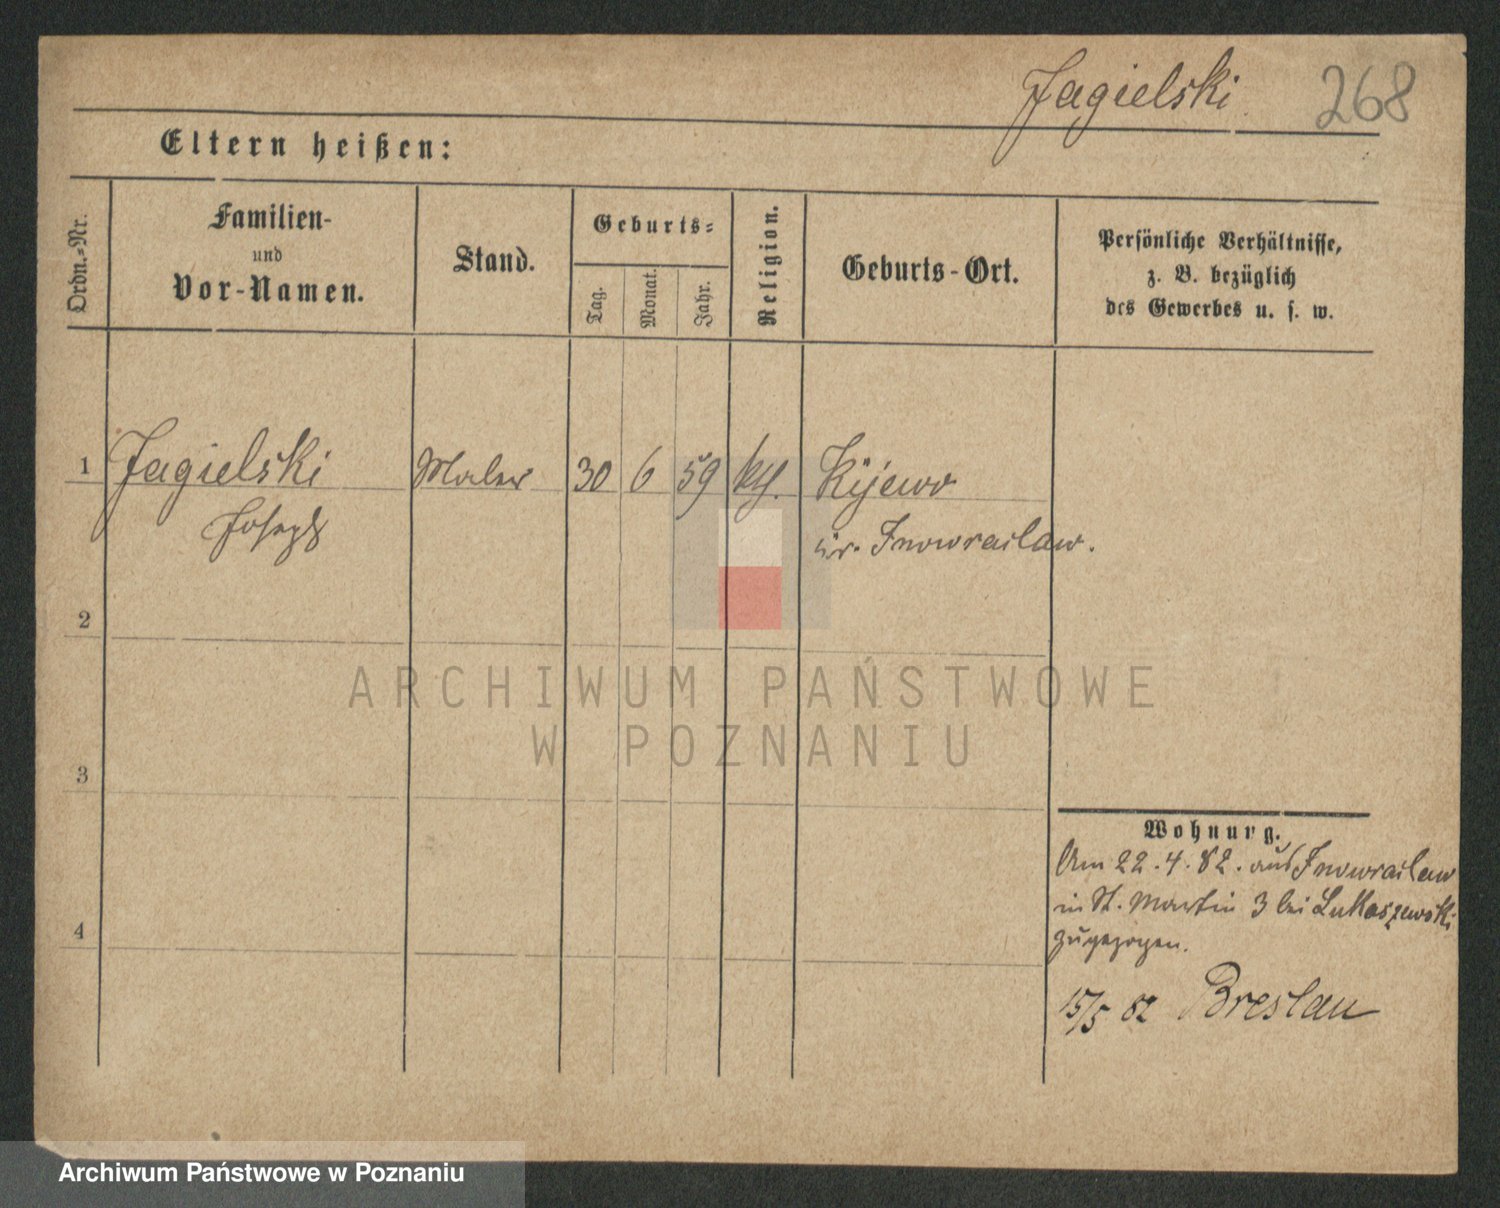 Jagielski. 268
Eltern heißen:
Ordn.-Nr.
Familien-
und
Vor-Namen.
Stand.
Geburts-
Tag.
Monat.
Jahr.
Religion.
Geburts-Ort.
Persönliche Verhältnisse,
z. B. bezüglich
des Gewerbes u. s. w.
1 Jagielski Maler 30 6 59 kth. Kijewo
Joseph Kr. Inowraclaw.
2
3
4
ARCHIWUM PAŃSTWOWE
W POZNANIU
Wohnung.
Am 22.4.82. aus Inowraclaw
in St. Martin 3 bei Lukaszewski
zugezogen.
15/5 82 Breslau
Archiwum Państwowe w Poznaniu